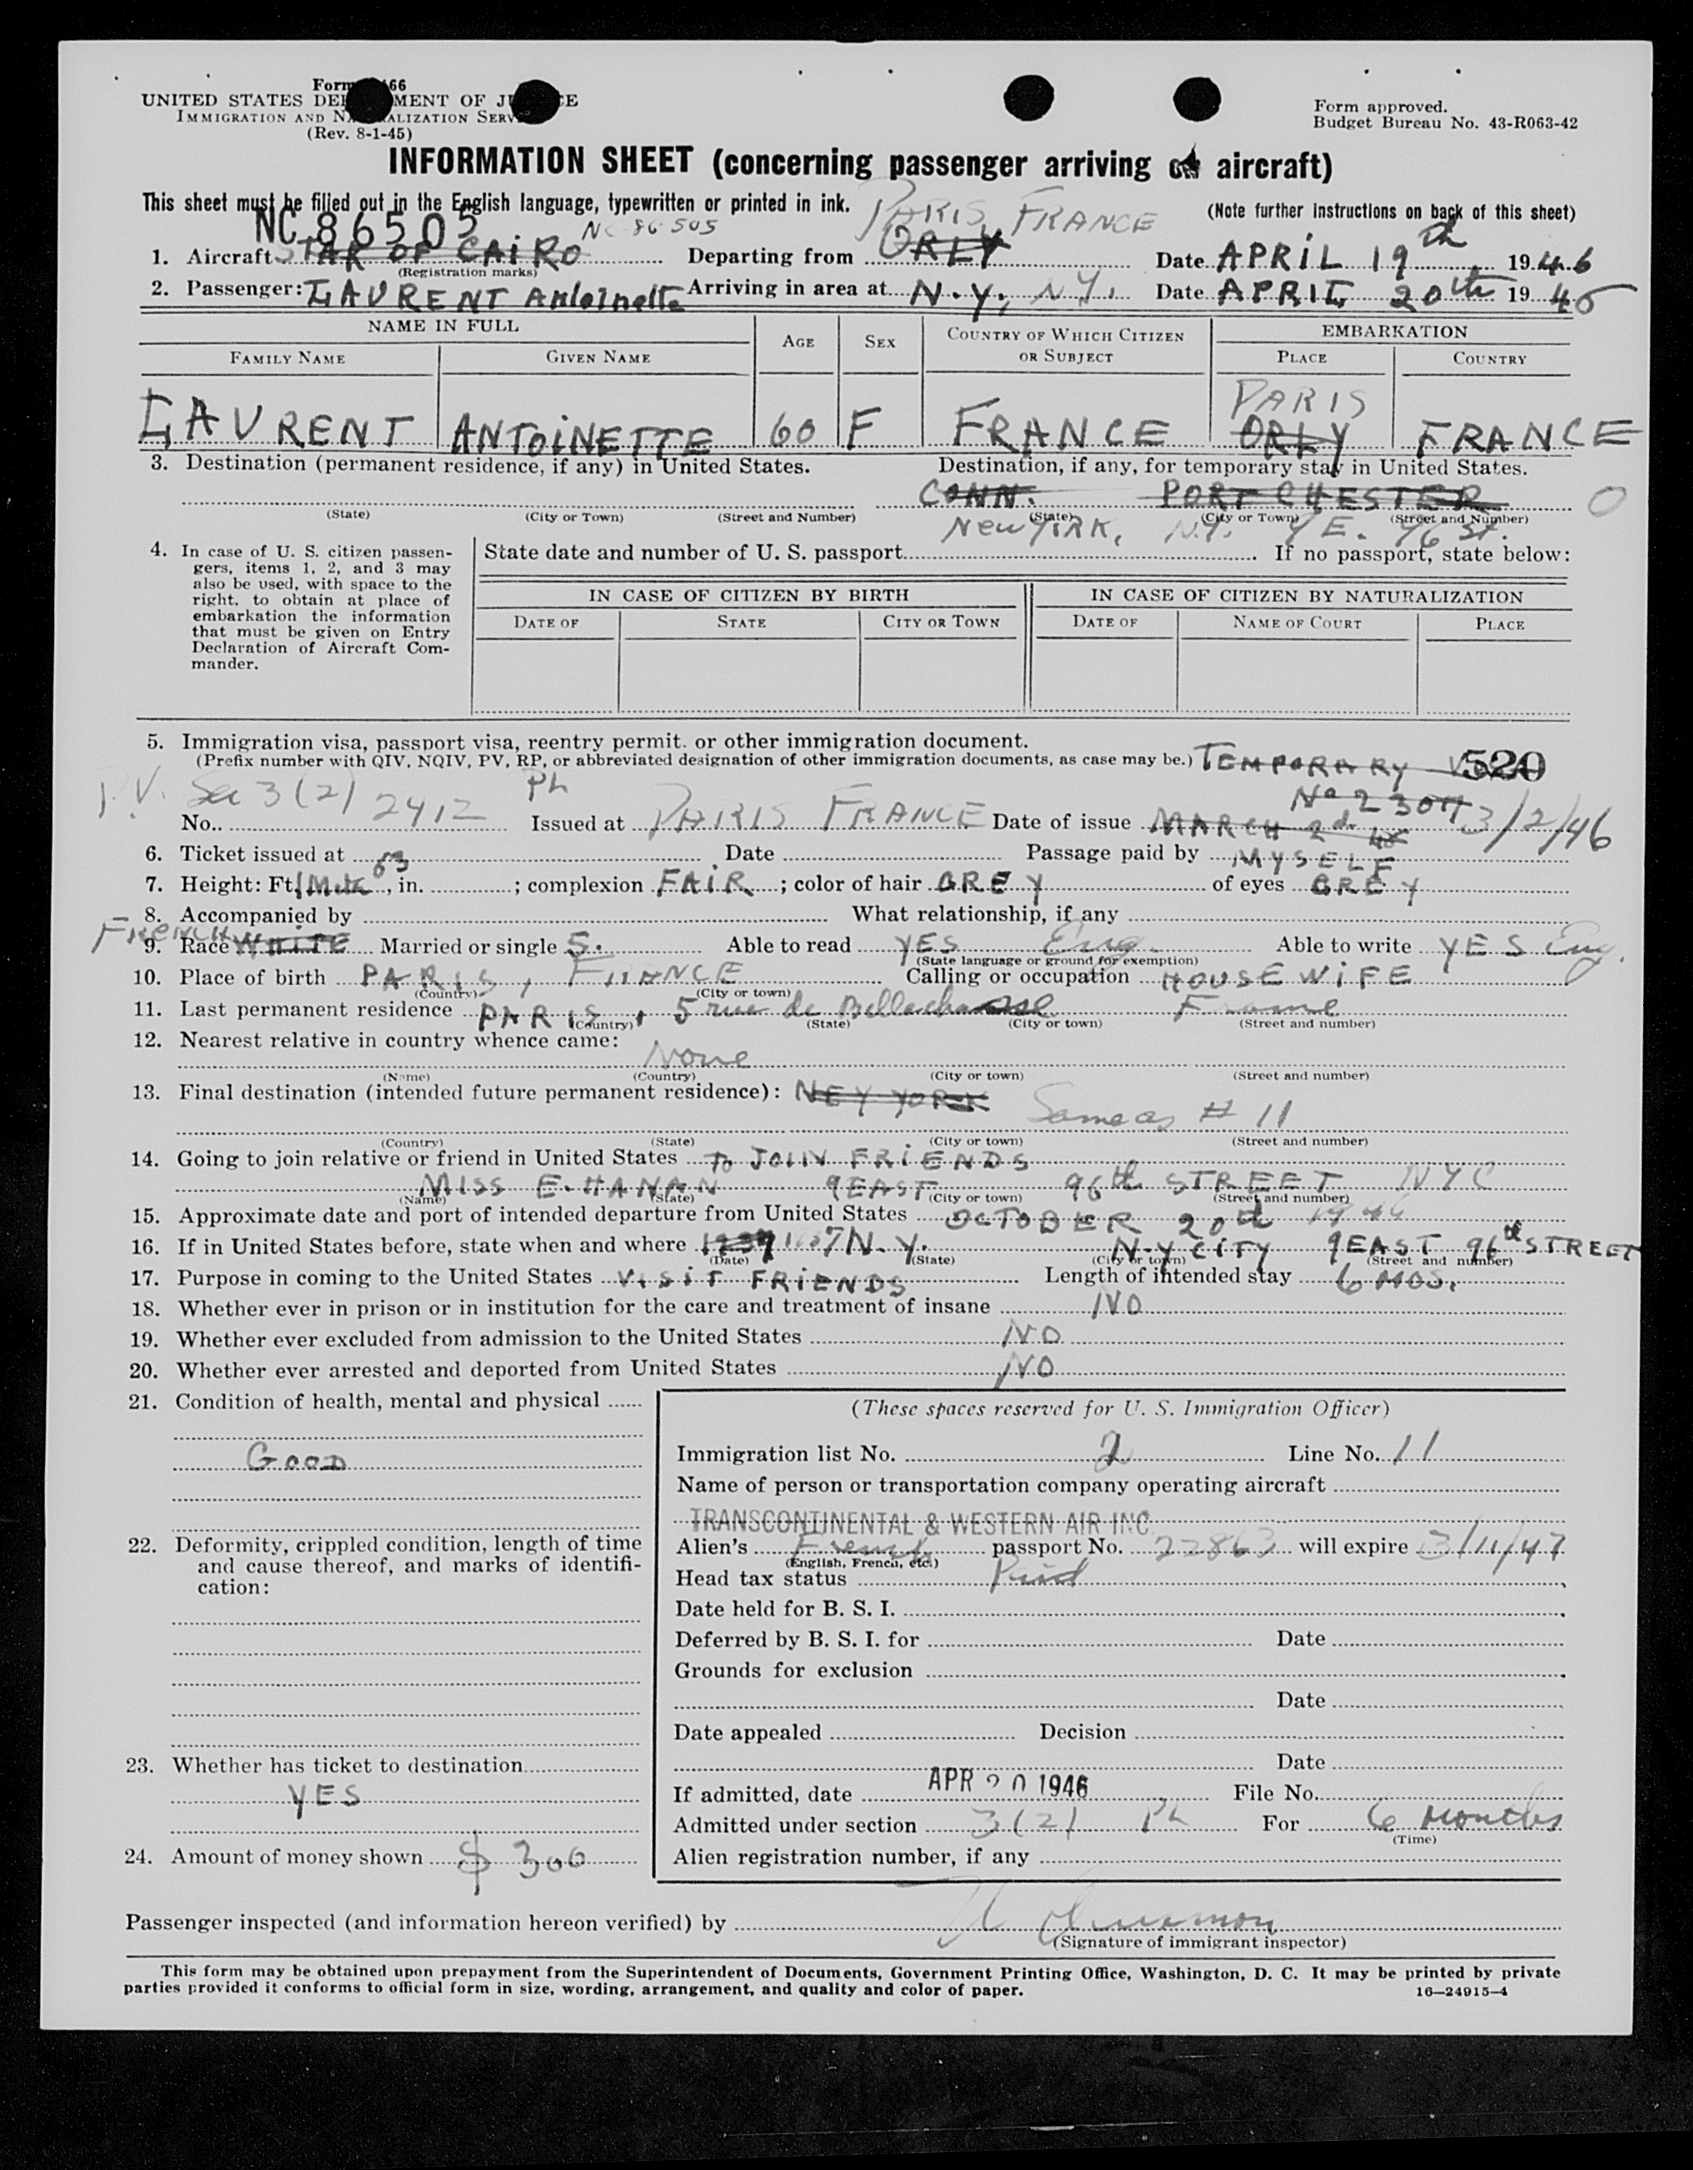 Form 66
UNITED STATES DEPARTMENT OF JUSTICE
IMMIGRATION AND NATURALIZATION SERVICE
(Rev. 8-1-45)
Form approved.
Budget Bureau No. 43-R063-42
INFORMATION SHEET (concerning passenger arriving on aircraft)
This sheet must be filled out in the English language, typewritten or printed in ink.
(Note further instructions on back of this sheet)
NC 86505 NC 86505 PARIS, FRANCE
1. Aircraft STAR OF CAIRO Departing from ORLY Date APRIL 19th 1946
(Registration marks)
2. Passenger: LAURENT Antoinette Arriving in area at N.Y., N.Y. Date APRIL 20th 1946
NAME IN FULL AGE SEX COUNTRY OF WHICH CITIZEN OR SUBJECT EMBARKATION
FAMILY NAME GIVEN NAME PLACE COUNTRY
PARIS
LAURENT ANTOINETTE 60 F FRANCE ORLY FRANCE
3. Destination (permanent residence, if any) in United States. Destination, if any, for temporary stay in United States.
CONN. PORT CHESTER 0
(State) (City or Town) (Street and Number) (State) (City or Town) (Street and Number)
New YORK, N.Y. 9 E. 96 St.
4. In case of U. S. citizen passen-
gers, items 1, 2, and 3 may
also be used, with space to the
right, to obtain at place of
embarkation the information
that must be given on Entry
Declaration of Aircraft Com-
mander.
State date and number of U. S. passport If no passport, state below:
IN CASE OF CITIZEN BY BIRTH IN CASE OF CITIZEN BY NATURALIZATION
DATE OF STATE CITY OR TOWN DATE OF NAME OF COURT PLACE
5. Immigration visa, passport visa, reentry permit, or other immigration document.
(Prefix number with QIV, NQIV, PV, RP, or abbreviated designation of other immigration documents, as case may be.) TEMPORARY 520
P.V. Sec 3(2) Ph No 2307
No. 2412 Issued at PARIS FRANCE Date of issue MARCH 2d 46 3/2/46
6. Ticket issued at Date Passage paid by MYSELF
7. Height: Ft. 1 Met. 63, in. ; complexion FAIR ; color of hair GREY of eyes GREY
8. Accompanied by What relationship, if any
FRENCH
9. Race WHITE Married or single S. Able to read YES Eng. Able to write YES Eng.
(State language or ground for exemption)
10. Place of birth PARIS, FRANCE Calling or occupation HOUSEWIFE
(Country) (City or town)
11. Last permanent residence PARIS, 5 rue de Bellechasse France
(Country) (State) (City or town) (Street and number)
12. Nearest relative in country whence came:
None
(Name) (Country) (City or town) (Street and number)
13. Final destination (intended future permanent residence): NEY YORK Same as # 11
(Country) (State) (City or town) (Street and number)
14. Going to join relative or friend in United States TO JOIN FRIENDS
MISS E. HANAN 9 EAST 96th STREET NYC
(Name) (State) (City or town) (Street and number)
15. Approximate date and port of intended departure from United States OCTOBER 20th 1946
16. If in United States before, state when and where N.Y. N.Y CITY 9 EAST 96th STREET
(Date) (State) (City or town) (Street and number)
17. Purpose in coming to the United States VISIT FRIENDS Length of intended stay 6 MOS.
18. Whether ever in prison or in institution for the care and treatment of insane NO
19. Whether ever excluded from admission to the United States NO
20. Whether ever arrested and deported from United States NO
21. Condition of health, mental and physical
GOOD
22. Deformity, crippled condition, length of time
and cause thereof, and marks of identifi-
cation:
23. Whether has ticket to destination
YES
24. Amount of money shown $ 300
(These spaces reserved for U. S. Immigration Officer)
Immigration list No. 2 Line No. 11
Name of person or transportation company operating aircraft
TRANSCONTINENTAL & WESTERN AIR INC.
Alien's French passport No. 22863 will expire 3/11/47
(English, French, etc.)
Head tax status Paid
Date held for B. S. I.
Deferred by B. S. I. for Date
Grounds for exclusion
Date
Date appealed Decision
Date
If admitted, date APR 20 1946 File No.
Admitted under section 3(2) Ph For 6 Months
(Time)
Alien registration number, if any
Passenger inspected (and information hereon verified) by
(Signature of immigrant inspector)
This form may be obtained upon prepayment from the Superintendent of Documents, Government Printing Office, Washington, D. C. It may be printed by private
parties provided it conforms to official form in size, wording, arrangement, and quality and color of paper.
16—24915-4